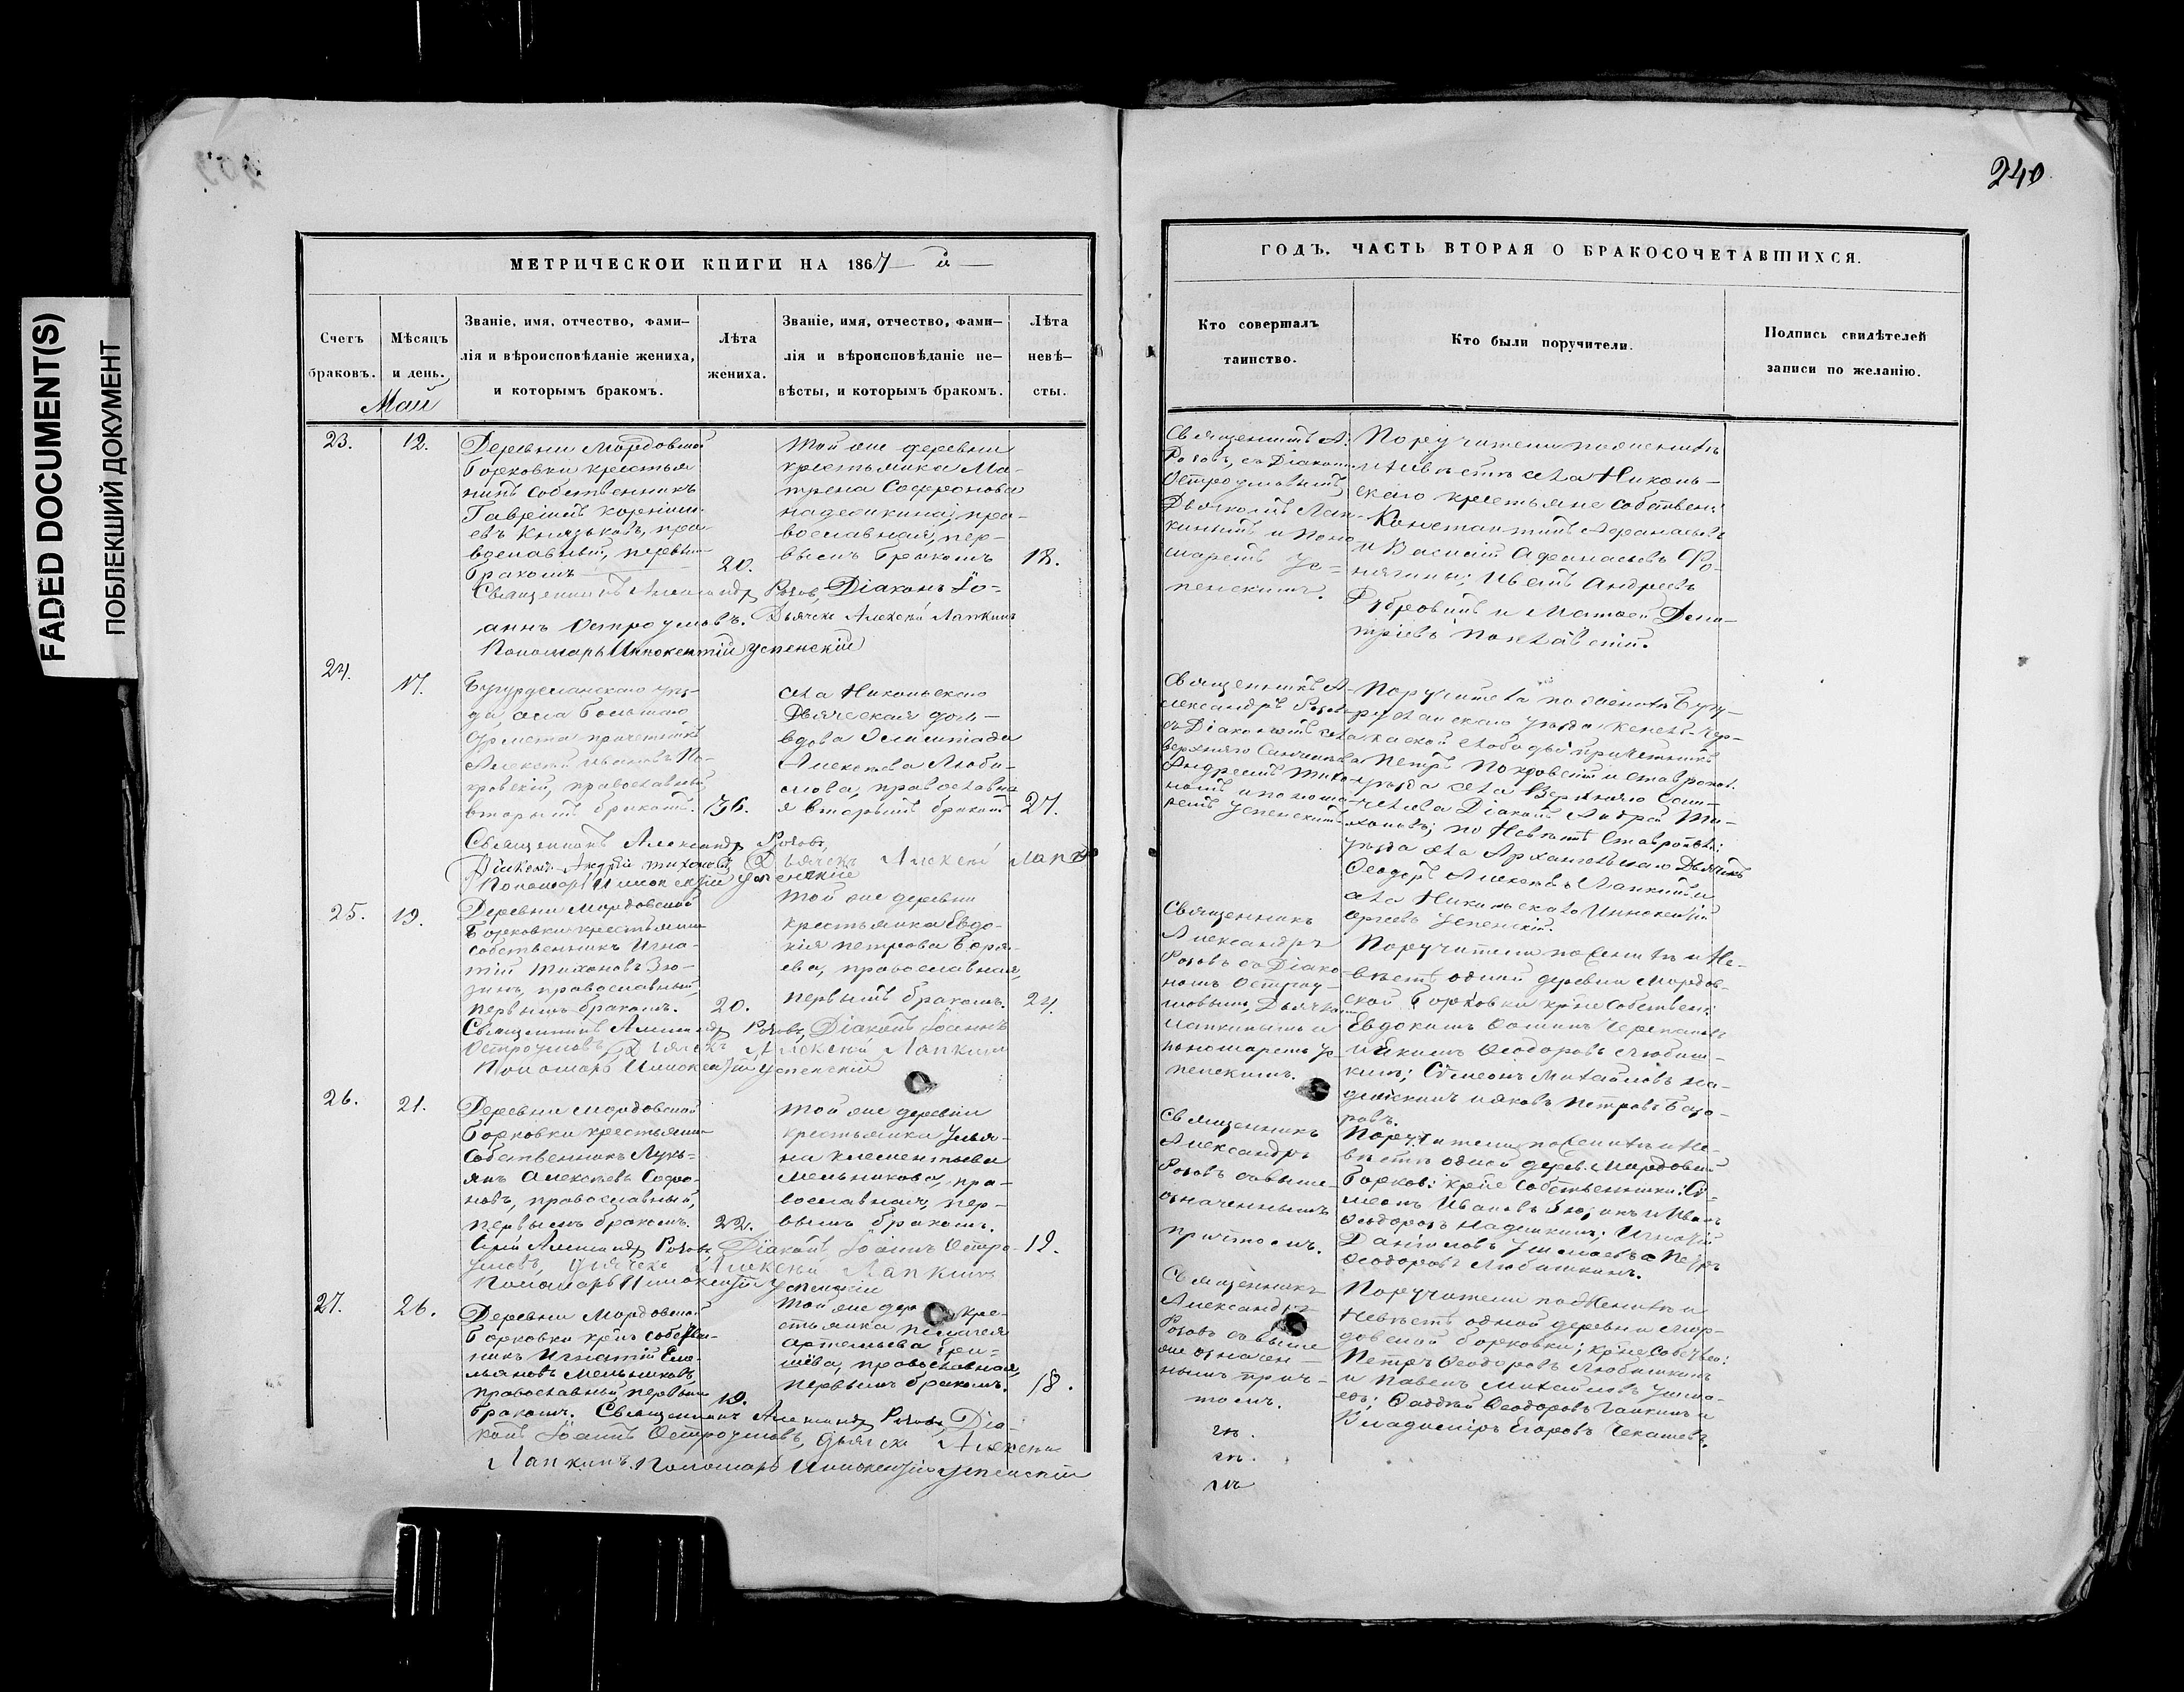 FADED DOCUMENT(S)
ПОБЛЕКШИЙ ДОКУМЕНТ
МЕТРИЧЕСКОЙ КНИГИ НА 1867 й
Счетъ
браковъ.
Мѣсяцъ
и день.
Май
Званіе, имя, отчество, фами-
лія и вѣроисповѣданіе жениха,
и которымъ бракомъ.
Лѣта
жениха.
Званіе, имя, отчество, фами-
лія и вѣроисповѣданіе не-
вѣсты, и которымъ бракомъ.
Лѣта
невѣ-
сты.
23.
12.
Деревни Мордовской
Борковки крестья
нинъ собственникъ
Гавріилъ
евъ Князьковъ, пра
вославный, первым
бракомъ
20.
Той же деревни
крестьянка Ма-
трена Софронова
Надешкина, пра-
вославная, пер-
вымъ бракомъ
18.
Священникъ Александр Розов, Діаконъ Іо-
аннъ Остроумовъ. Дьячекъ Алексѣй Лапкинъ
Пономарь Иннокентій Успенскій
24.
17.
Бугурусланскаго уѣз-
да, села Большаго
причетникъ
Алексѣй Ивановъ По-
кровскій, православный
вторымъ бракомъ.
36.
села Никольскаго
Дьяческая дочь
вдова Олимпіада
Алексѣева Люби-
мова, православна
я вторымъ бракомъ
27.
Священникъ Александр Розовъ,
Діаконъ Андрей Тихоновъ, Дьячекъ Алексѣй Лапк
Пономарь Иннокентій Успенскій
25.
19.
Деревни Мордовской
Борковки крестьянин
собственникъ Игна-
тій Тихоновъ Зю-
зинъ, православный,
первымъ бракомъ.
20.
Той же деревни
крестьянка Евдо-
кія Петрова
ева, православная,
первымъ бракомъ.
24.
Священникъ Александр Розовъ, Діаконъ Іоаннъ
Остроумовъ, Дьячекъ Алексѣй Лапкинъ
Пономарь Иннокентій Успенскій
26.
21.
Деревни Мордовской
Борковки крестьянин
собственникъ Лукь-
янъ Алексѣевъ Софро-
новъ, православный,
первымъ бракомъ.
22.
Той же деревни
крестьянка Улья-
на Клементьева
Мельникова, пра-
вославная, пер-
вымъ бракомъ.
19.
Александр Розовъ, Діаконъ Іоаннъ Остро-
умовъ, Дьячекъ Алексѣй Лапкинъ
Пономарь Иннокентій Успенскій
27.
26.
Деревни Мордовской
Борковки крнъ собствен-
никъ Игнатій Еме-
льяновъ Мельниковъ,
православный, первым
19.
Той же дер кре-
стьянка Пелагея
Артемьева
православная,
первымъ бракомъ.
18.
бракомъ. Священникъ Александр Розовъ, Діа-
конъ Іоаннъ Остроумовъ, Дьячекъ Алексѣй
Лапкинъ. Пономарь Иннокентій Успенскій
240
ГОДЪ. ЧАСТЬ ВТОРАЯ О БРАКОСОЧЕТАВШИХСЯ.
Кто совершалъ
таинство.
Кто были поручители.
Подпись свидѣтелей
записи по желанію.
Священникъ А.
Розовъ, съ Діакон
Остроумовымъ,
Дьячкомъ Лап-
кинымъ и Поно
маремъ Ус-
пенскимъ.
Поручители по женихѣ
и невѣстѣ села Николь-
скаго крестьяне собствен:
Константинъ Афанасьевъ
и Василій Афанасьевъ
Иванъ Андреевъ
и Матвей Дми-
тріевъ
Священникъ А-
лександръ Розовъ
съ Діакономъ села
верхняго Санчил
Андреемъ Тихо-
номъ и понома-
ремъ Успенскимъ
Поручители по женихѣ Бугу-
русланскаго уѣзда Чер-
касской слободы причетникъ
Петръ Покровскій и Ставропол.
уѣзда села Верхняго Сан-
челева Діаконъ Андрей Ти-
хоновъ; по невѣстѣ Ставропол:
уѣзда села Архангельскаго Дьячекъ
Ѳеодоръ Алексѣевъ Лапкинъ и
села Никольскаго Иннокентій
Успенскій.
Священникъ
Александръ
Розовъ съ Діако-
номъ Остроу-
мовымъ, Дьячком
Лапкинымъ и
пономаремъ Ус-
пенскимъ.
Поручители по женихѣ и не-
вѣстѣ одной деревни Мордов-
ской Борковки крне собствен:
Евдокимъ Ѳоминъ
и Екимъ Ѳеодоровъ Любиш-
кинъ; Симеонъ Михайловъ На-
дешкинъ и Яковъ Петровъ
Священникъ
Александръ
Розовъ съ выше-
означеннымъ
причтомъ.
Поручители по женихѣ и не-
вѣстѣ одной дерев. Мордовской
Борков: крне собственники: Си-
меонъ Ивановъ Зюзинъ и Иванъ
Ѳеодоровъ Надешкинъ; Игнатій
Даниловъ и Петръ
Ѳеодоровъ Любишкинъ.
Священникъ
Александръ
Розовъ съ выше
же означен-
нымъ прич-
томъ.
Поручители по женихѣ и
невѣстѣ одной деревни Мор-
довской Борковки; крне собствен:
Петръ Ѳеодоровъ Любишкинъ
и Павелъ Михайловъ
Ѳаддей Ѳеодоровъ Галкинъ и
Владиміръ Егоровъ Чекашевъ.